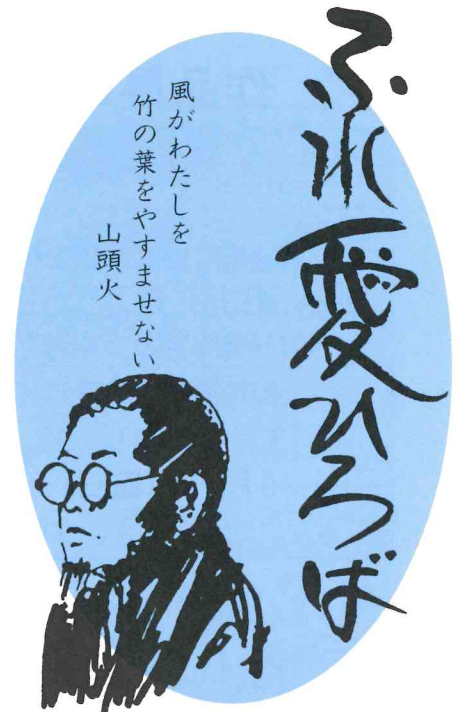 ふれ愛ひろば
風がわたしを
竹の葉をやすませない
山頭火